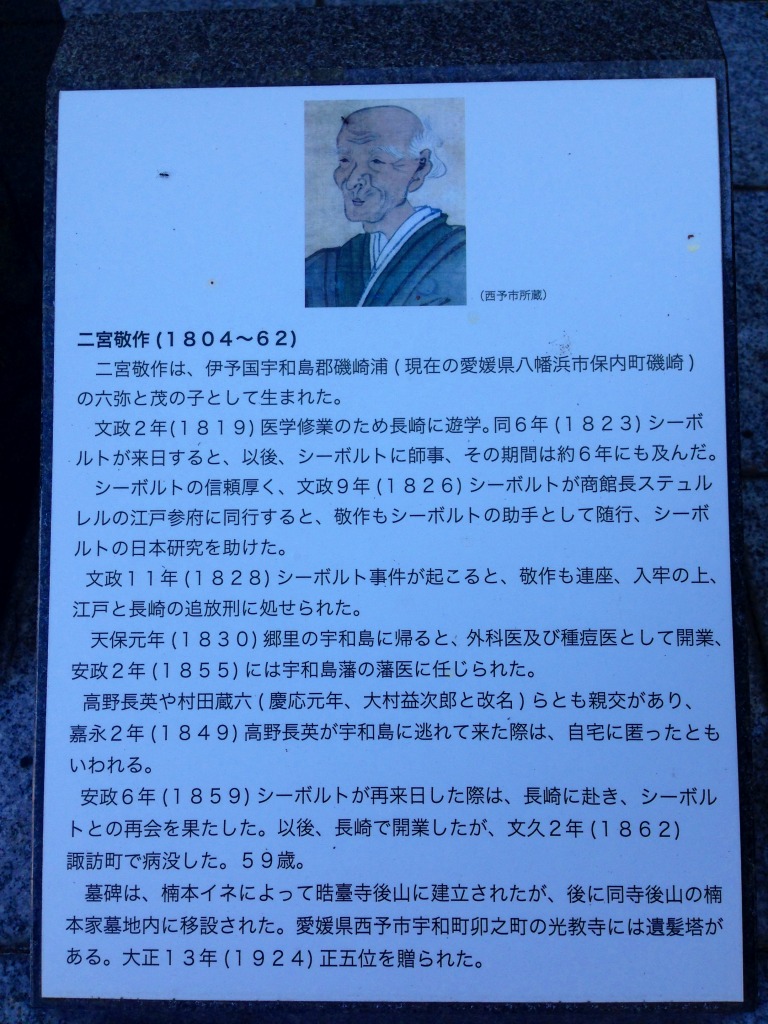 (西予市所蔵)
二宮敬作(1804〜62)
二宮敬作は、伊予国宇和島郡磯崎浦(現在の愛媛県八幡浜市保内町磯崎)
の六弥と茂の子として生まれた。
文政2年(1819)医学修業のため長崎に遊学。同6年(1823)シーボ
ルトが来日すると、以後、シーボルトに師事、その期間は約6年にも及んだ。
シーボルトの信頼厚く、文政9年(1826)シーボルトが商館長ステュル
レルの江戸参府に同行すると、敬作もシーボルトの助手として随行、シーボ
ルトの日本研究を助けた。
文政11年(1828)シーボルト事件が起こると、敬作も連座、入牢の上、
江戸と長崎の追放刑に処せられた。
天保元年(1830)郷里の宇和島に帰ると、外科医及び種痘医として開業、
安政2年(1855)には宇和島藩の藩医に任じられた。
高野長英や村田蔵六(慶応元年、大村益次郎と改名)らとも親交があり、
嘉永2年(1849)高野長英が宇和島に逃れて来た際は、自宅に匿ったとも
いわれる。
安政6年(1859)シーボルトが再来日した際は、長崎に赴き、シーボル
トとの再会を果たした。以後、長崎で開業したが、文久2年(1862)
諏訪町で病没した。59歳。
墓碑は、楠本イネによって晧臺寺後山に建立されたが、後に同寺後山の楠
本家墓地内に移設された。愛媛県西予市宇和町卯之町の光教寺には遺髪塔が
ある。大正13年(1924)正五位を贈られた。